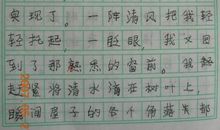 实现了。一阵清风把我轻
轻托起，一眨眼，我又回
到了那熟悉的窗前。我
赶紧将清水滴在树叶上，
瞬间屋子的各个角落失都